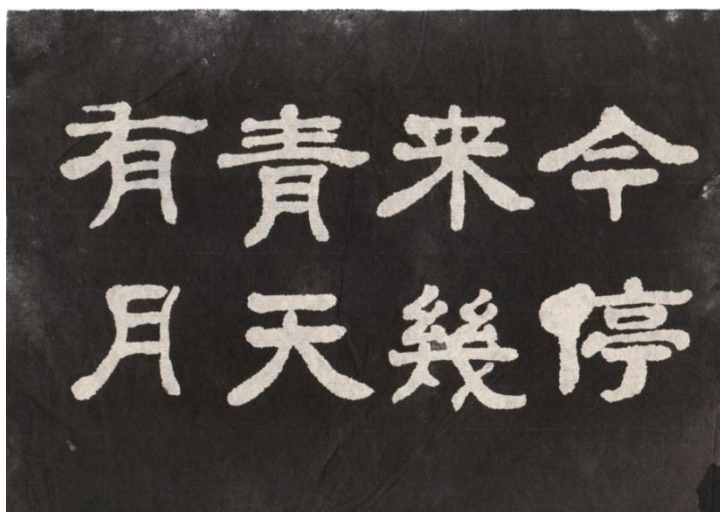 今停
来幾
青天
有月